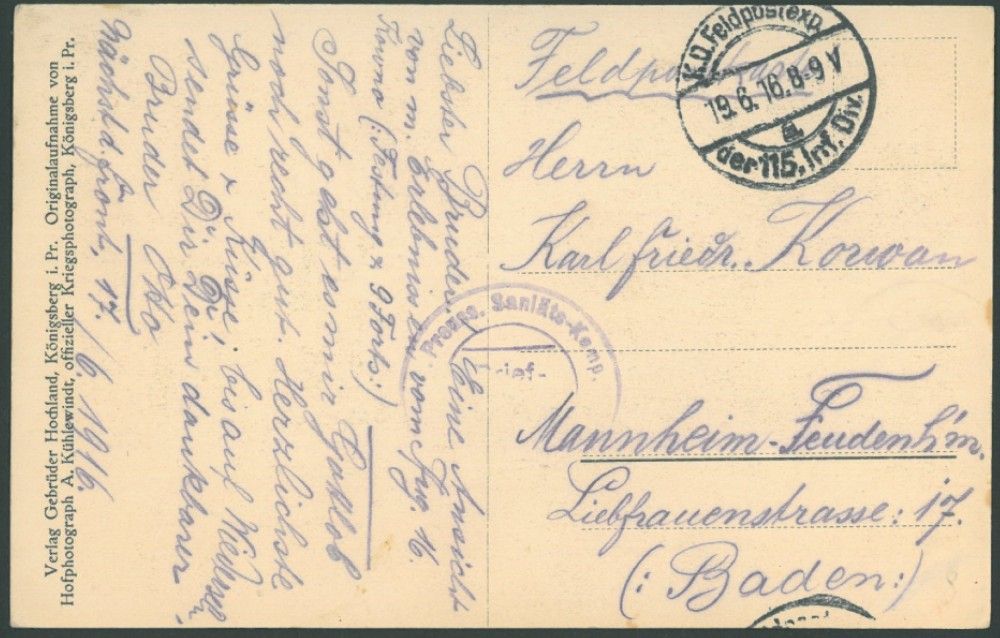 Verlag Gebrüder Hochland, Königsberg i. Pr. Originalaufnahme von
Hofphotograph A. Kühlewindt, offizieller Kriegsphotograph, Königsberg i. Pr.
Liebster Bruder! Eine Ansicht
von m. Erlebnissen vom Aug. 16
Kowno (: Festung & 9 Forts:)
Sonst geht es mir Gottlob
noch recht gut. Herzlichste
Grüsse & Küsse! bis auf Wiederseh'n
sendet Dir Dein dankbarer
Bruder Otto
Nächst. d. Front, 17./6. 1916.
K.D. Feldpostexp.
19.6.16.8-9 V
a
der 115. Inf. Div.
Feldpost
Herrn
Karl Friedr. Korwan
Preuss. Sanitäts-Komp.
Brief-
Mannheim-Feudenh'm.
Liebfrauenstrasse: 17.
(: Baden :)